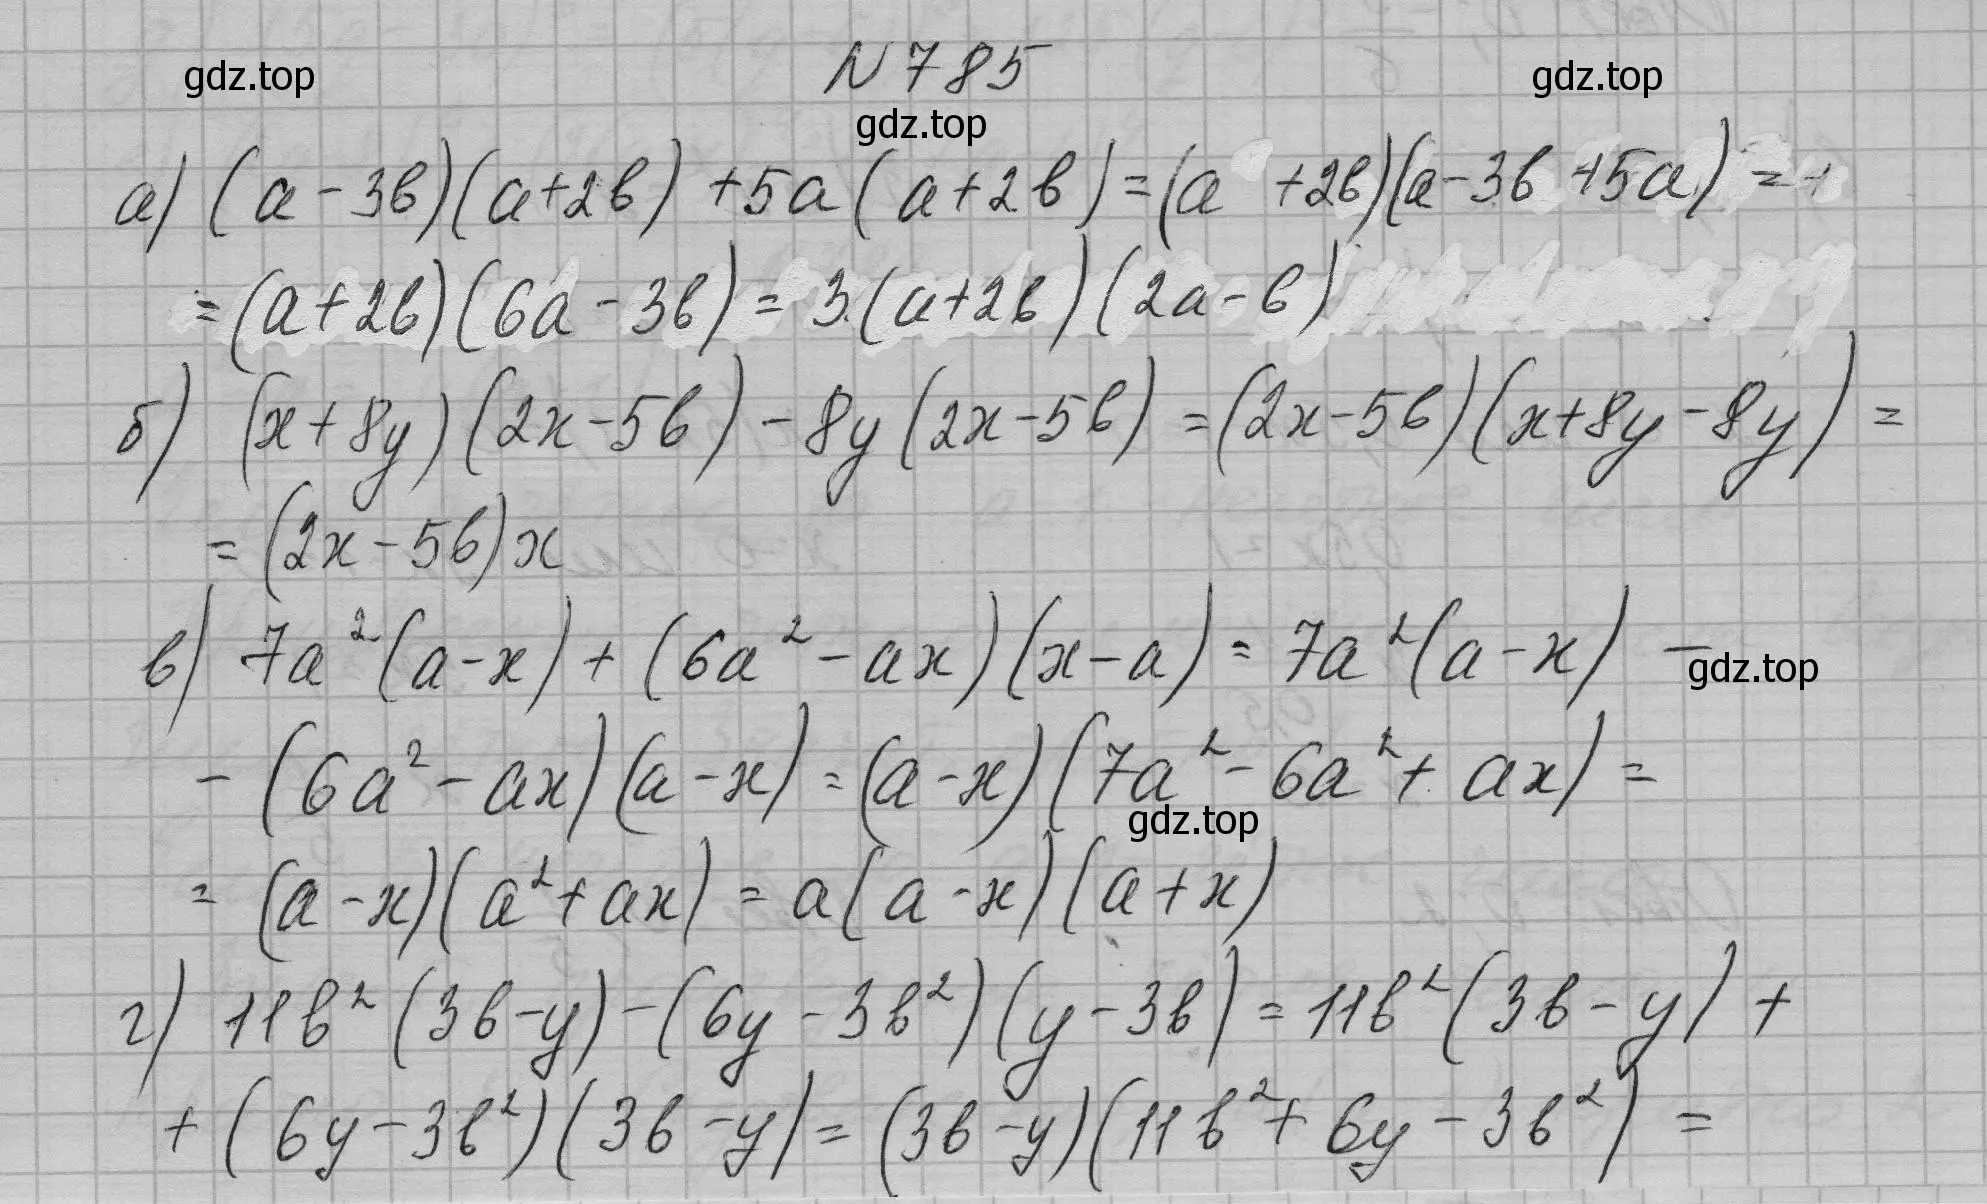 N 785
gdz.top
gdz.top
gdz.top
а) (a - 3b)(a+2b) +5a(a+2b) = (a +2b)(a-3b+5a) =
= (a+2b)(6a-3b) = 3(a+2b)(2a-b)
б) (x+8y)(2x-5b) - 8y(2x-5b) = (2x-5b)(x+8y-8y) =
= (2x-5b)x
в) 7a²(a-x) + (6a²-ax)(x-a) = 7a²(a-x) -
gdz.top
- (6a²-ax)(a-x) = (a-x)(7a²-6a²+ax) =
gdz.top
= (a-x)(a²+ax) = a(a-x)(a+x)
г) 11b²(3b-y) - (6y-3b²)(y-3b) = 11b²(3b-y) +
+ (6y-3b²)(3b-y) = (3b-y)(11b²+6y-3b²) =